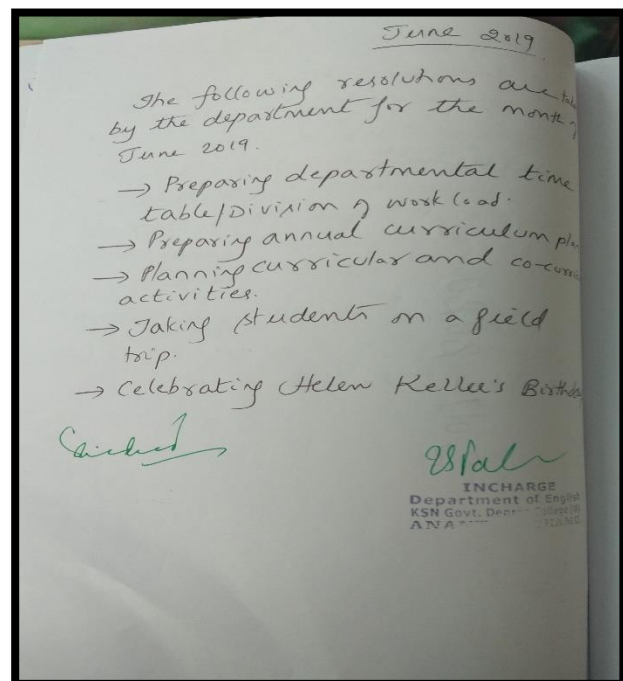 June 2019
The following resolutions are
by the department for the month
June 2019.
→ Preparing departmental time
table/Division of work load.
→ Preparing annual curriculum
→ Planning curricular and co-curri
activities.
→ Taking students on a field
trip.
→ Celebrating Helen Keller's Birthday
INCHARGE
Department of English
KSN Govt. Degree College